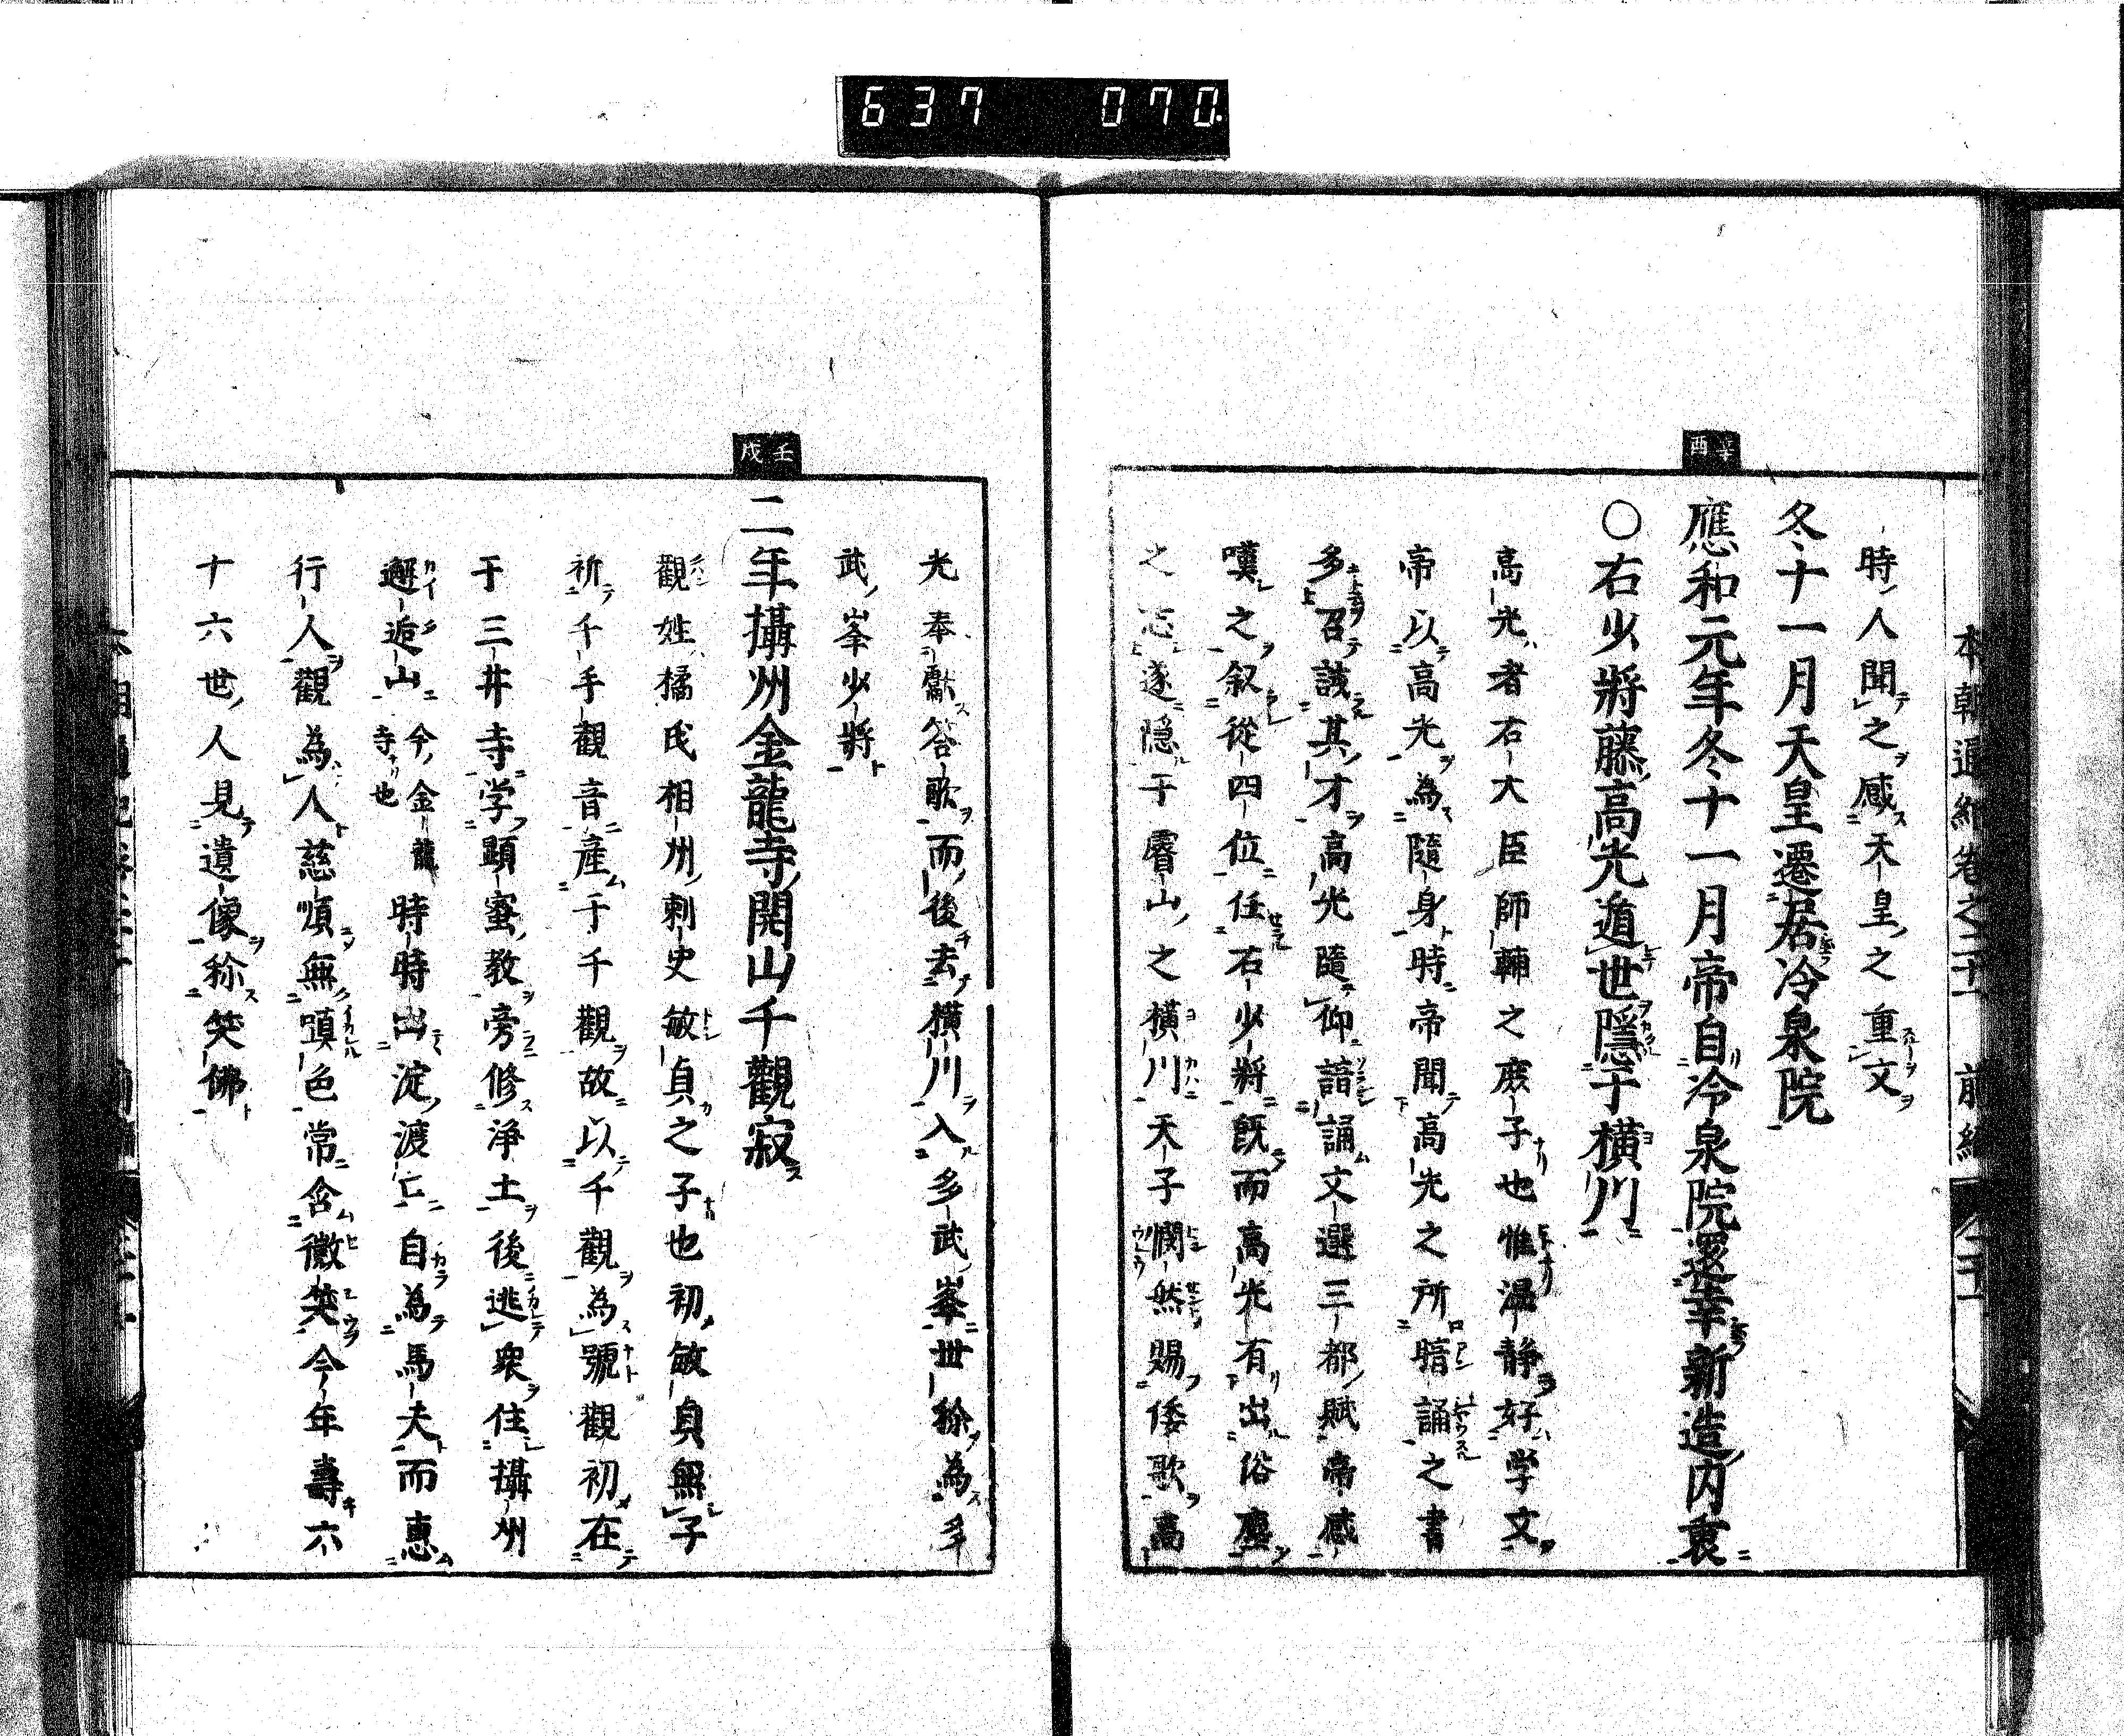 637 070
本朝通紀卷之二十一 前編
時人聞之感天皇之重文
冬十一月天皇遷居冷泉院
辛酉
應和元年冬十一月帝自冷泉院還幸新造内裏
○右少將藤高光遁世隱于横川
高光者右大臣師輔之庶子也惟温静好学文
帝以高光為隨身時帝聞高光之所暗誦之書
多召誠其才高光隨仰諳誦文選三都賦帝感
嘆之叙從四位任右少將既而高光有出俗塵
之志遂隱于睿山之横川天子憫然賜倭歌高
光奉獻答歌而後去横川入多武峯世称為多
武峯少將
壬戌
二年攝州金龍寺開山千觀寂
觀姓橘氏相州刺史敏貞之子也初敏貞無子
祈千手觀音産于千觀故以千觀為號觀初在
于三井寺学顕蜜教旁修浄土後逃衆住攝州
邂逅山今金龍寺也時時出淀渡亡自為馬夫而惠
行人觀為人慈順無嗔色常含微笑今年壽六
十六世人見遺像称笑佛